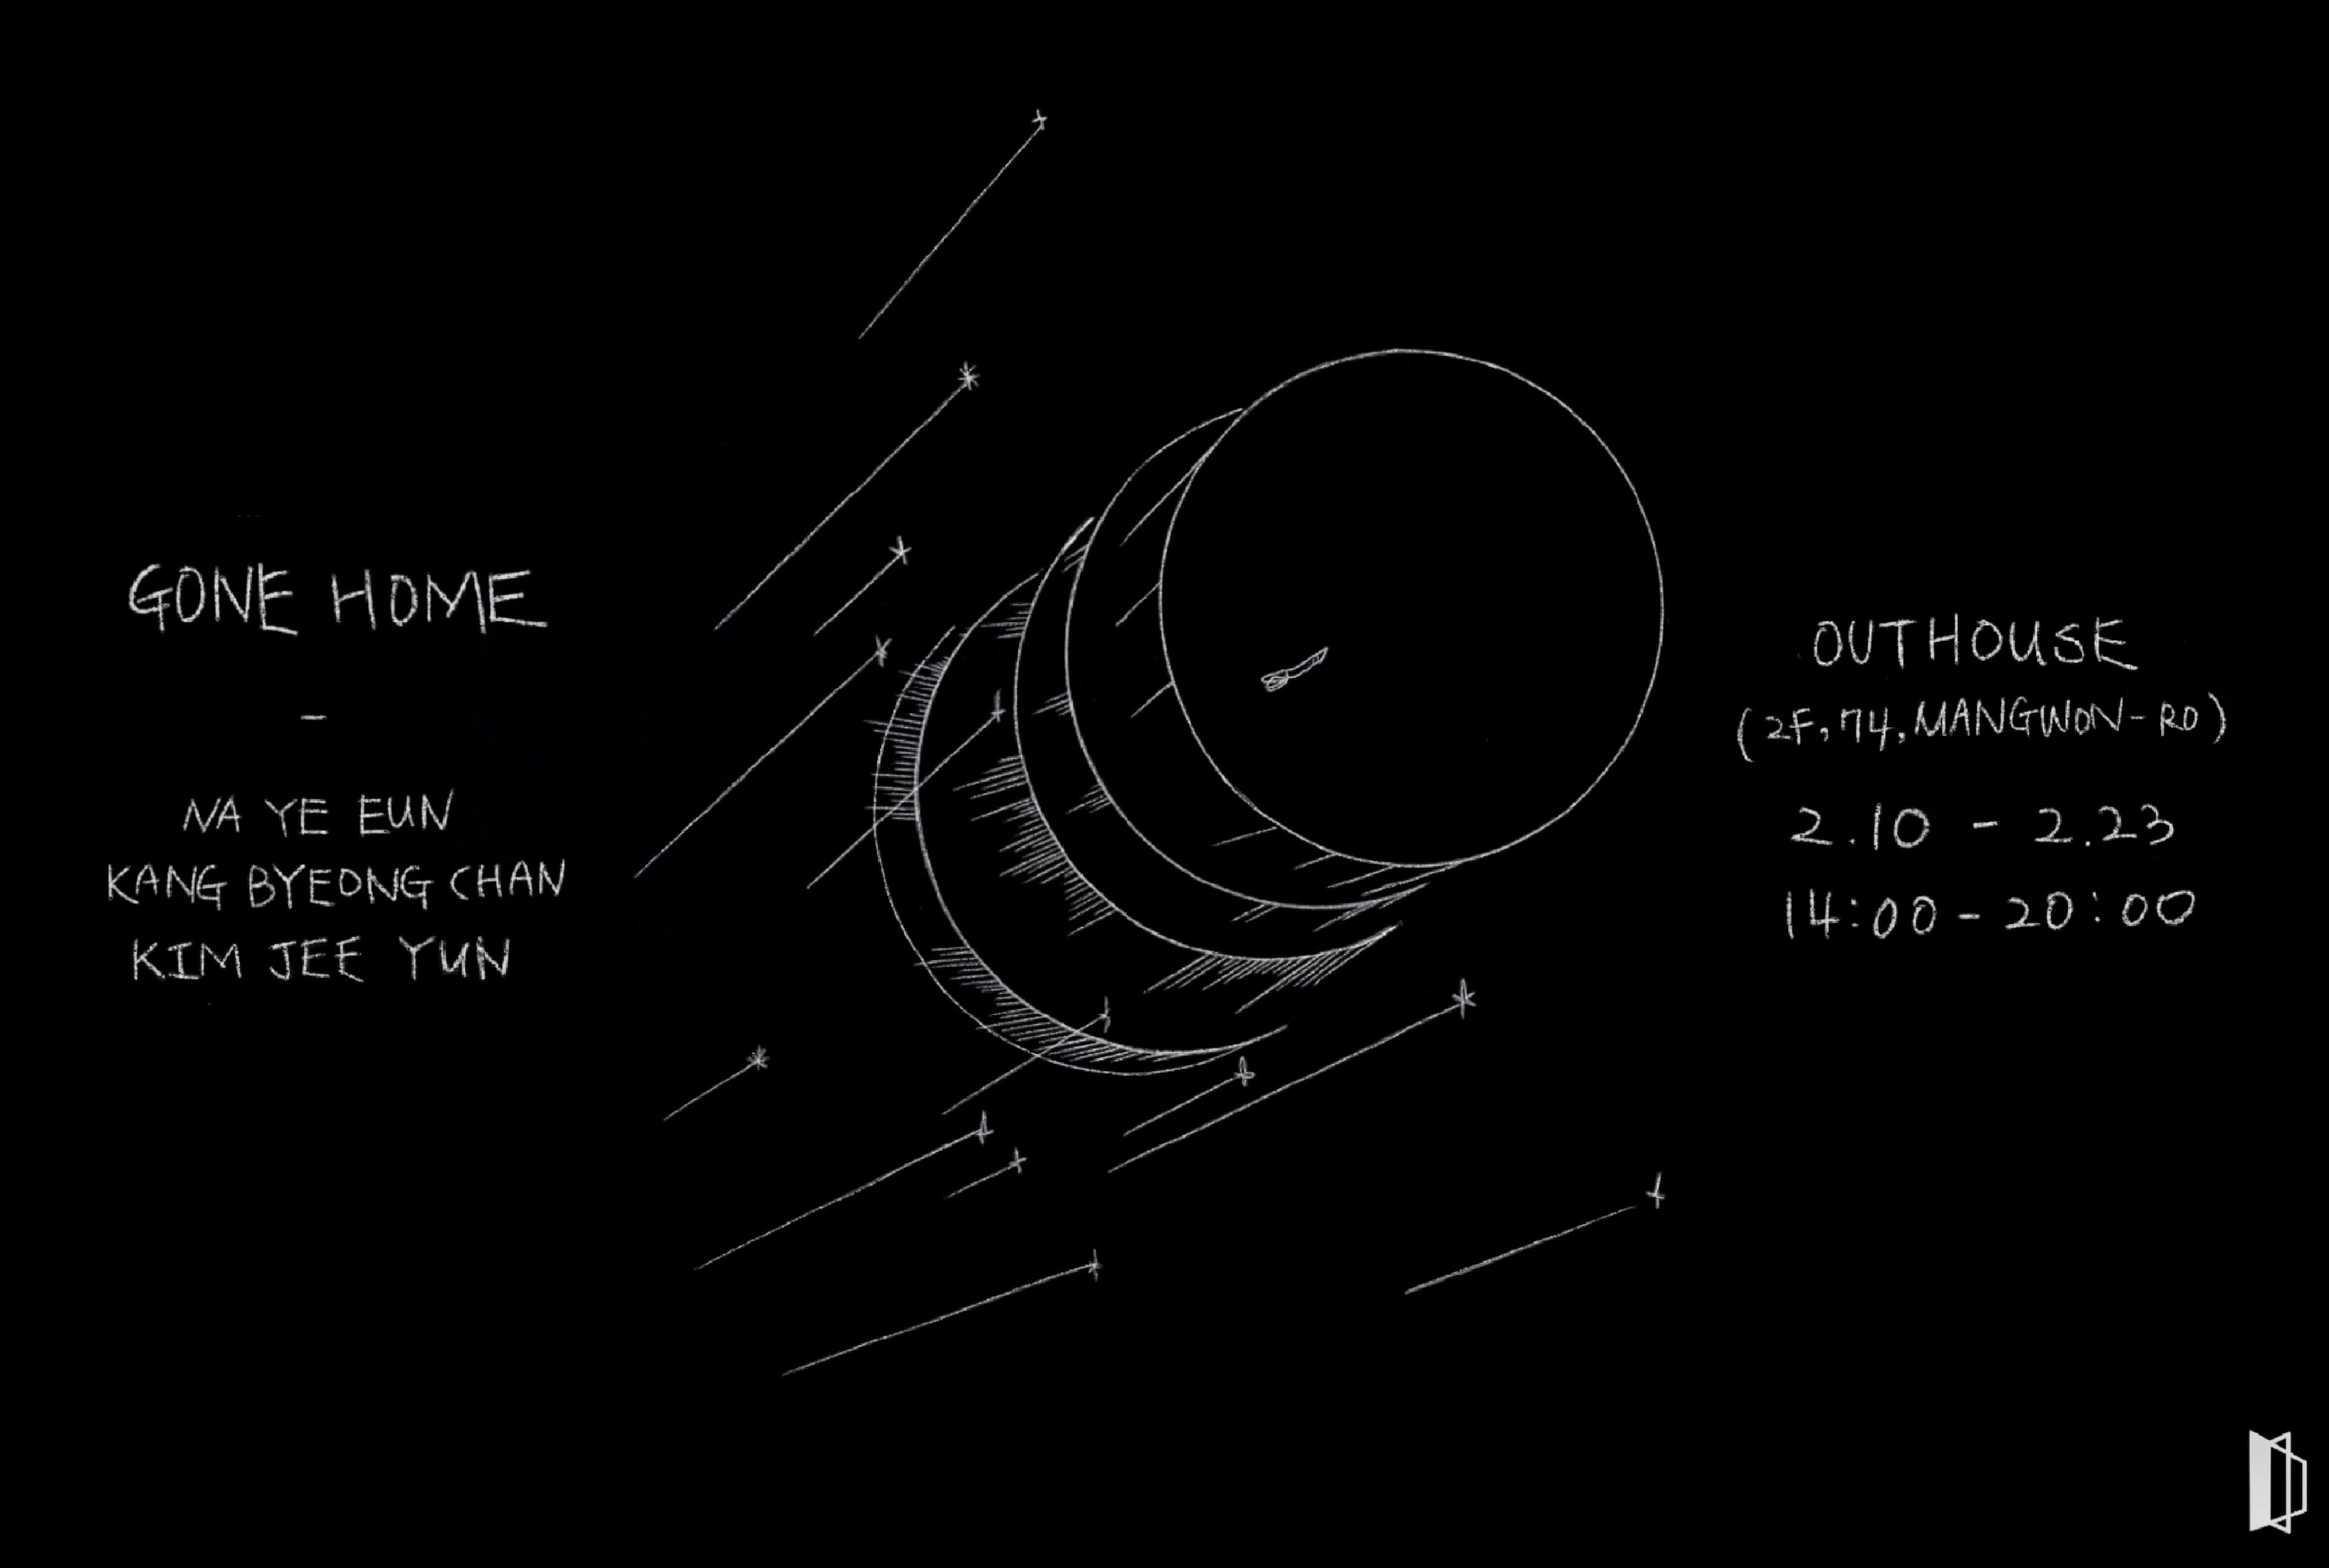 GONE HOME
-
NA YE EUN
KANG BYEONG CHAN
KIM JEE YUN
OUTHOUSE
(2F, 74, MANGWON-RO)
2.10 - 2.23
14:00 - 20:00